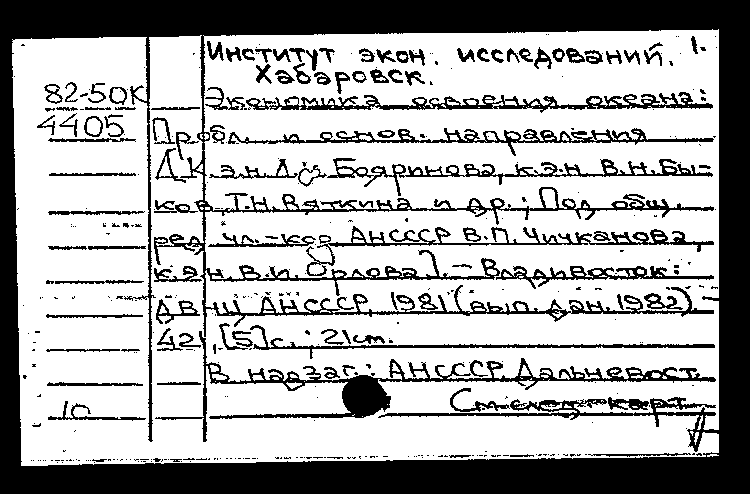 Институт экон. исследований. 1.
Хабаровск.
82-50К Экономика освоения океана:
4405 Пробл. и основ. направления
[К.э.н. Бояринова, к.э.н В.Н. Бы-
ков, Т.Н. Вяткина и др.; Под общ.
ред чл.-кор АНСССР В.П. Чичканова,
к.э.н. В.И. Орлова]. - Владивосток:
ДВНЦ АНСССР, 1981 (вып. дан. 1982). -
421, [5] с.; 21 см.
В надзаг.: АНСССР, Дальневост.
10 См след карт